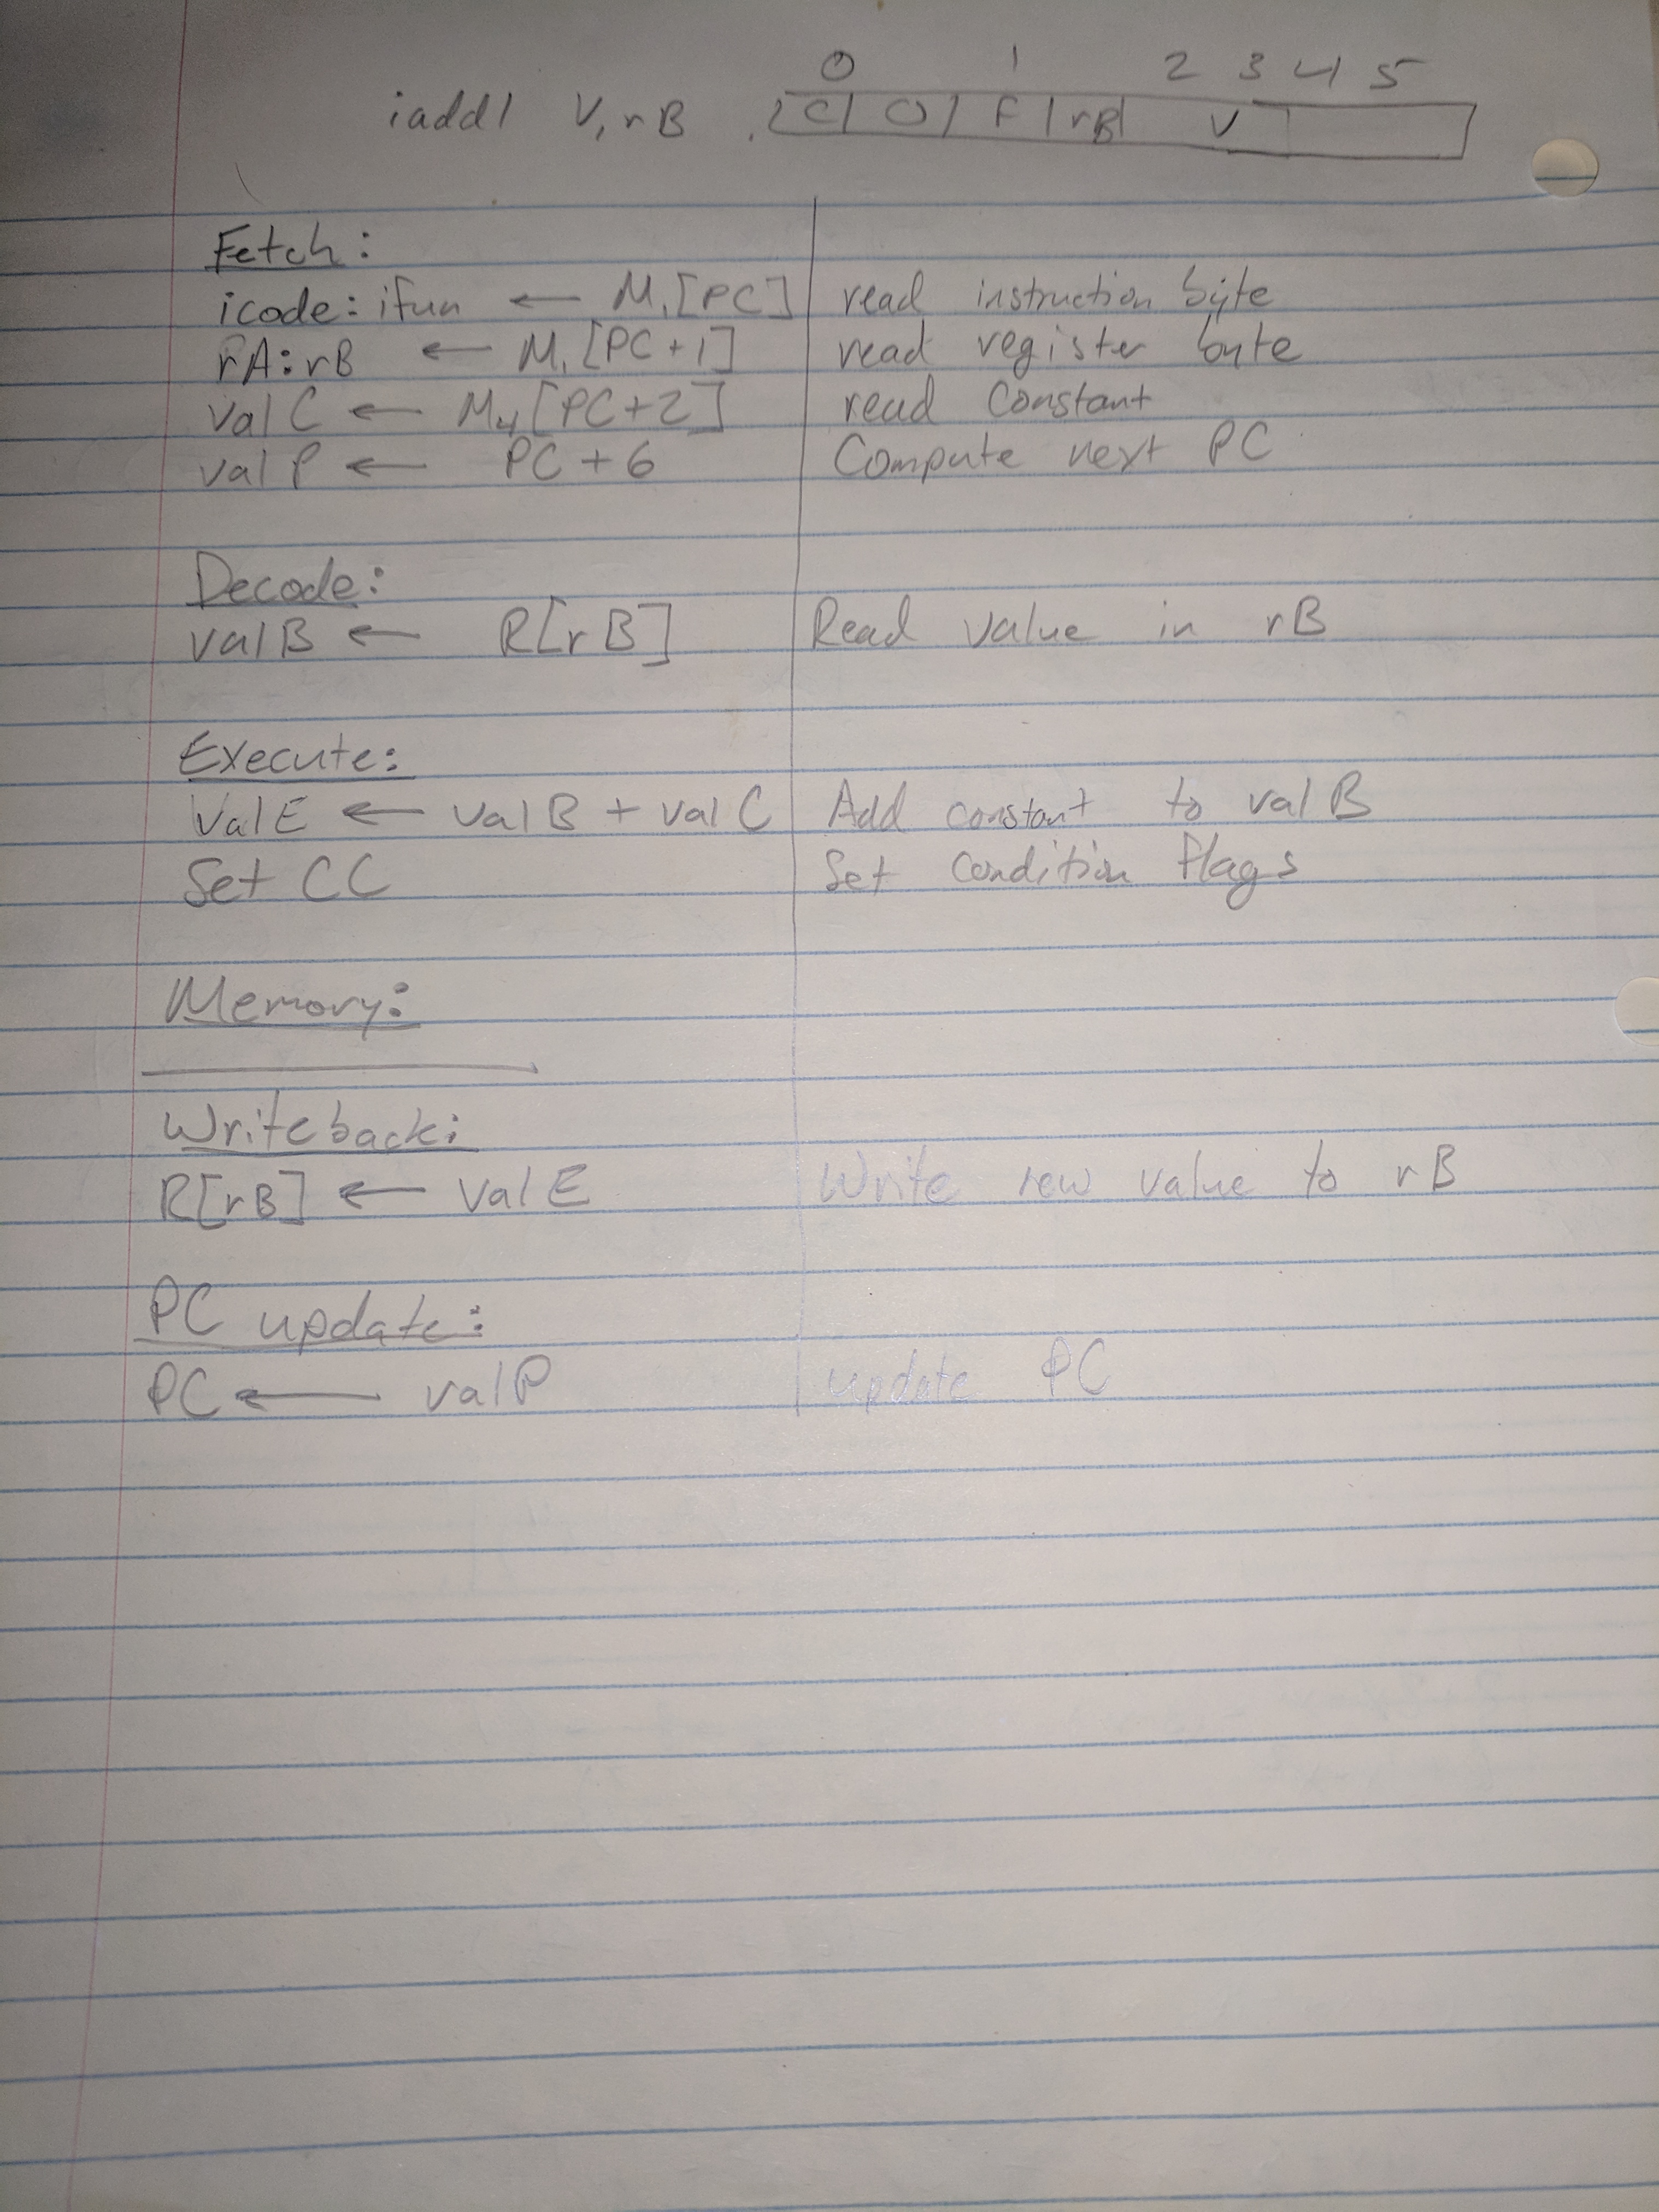 0 1 2 3 4 5
iaddl V, rB C 0 F rB V
Fetch:
icode: ifun ← M₁[PC] read instruction byte
rA: rB ← M₁[PC+1] read register byte
valC ← M₄[PC+2] read constant
valP ← PC + 6 Compute next PC
Decode:
valB ← R[rB] Read value in rB
Execute:
ValE ← valB + valC Add constant to valB
Set CC Set condition flags
Memory:
Writeback:
R[rB] ← valE Write new value to rB
PC update:
PC ← valP update PC